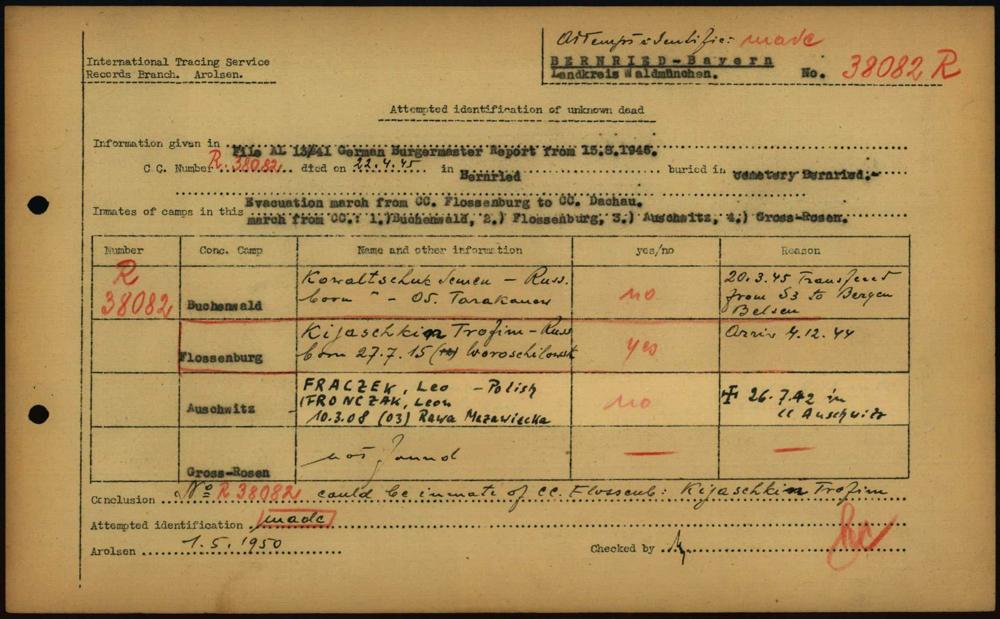 Attempts identific: made
International Tracing Service
Records Branch. Arolsen.
BERNRIED-Bayern
Landkreis Waldmünchen.
No. 38082 R
Attempted identification of unknown dead
Information given in File AL 13/41 German Burgermaster Report from 15.8.1946.
C C. Number R 38082 died on 22.4.45 in Bernried buried in cemetery Bernried.-
Evacuation march from CC. Flossenburg to CC. Dachau.
Inmates of camps in this march from CC.: 1.)Buchenwald, 2.) Flossenburg, 3.) Auschwitz, 4.) Gross-Rosen.
Number Conc. Camp Name and other information yes/no Reason
R 38082
Buchenwald
Kowaltschuk Semen - Russ.
born " - 05. Tarakanow
no
20.3.45 Transfered
from S3 to Bergen
Belsen
Flossenburg
Kijaschkin Trofim - Russ
born 27.7.15 Woroschilowsk
yes
Arriv 4.12.44
Auschwitz
FRACZEK, Leo - Polish
(FRONCZAK, Leon
10.3.08 (03) Rawa Mazawiecka
no
26.7.42 in
CC Auschwitz
Gross-Rosen
not found
Conclusion No R 38082 could be inmate of CC. Flossenb: Kijaschkin Trofim
Attempted identification made
Arolsen 1.5.1950
Checked by